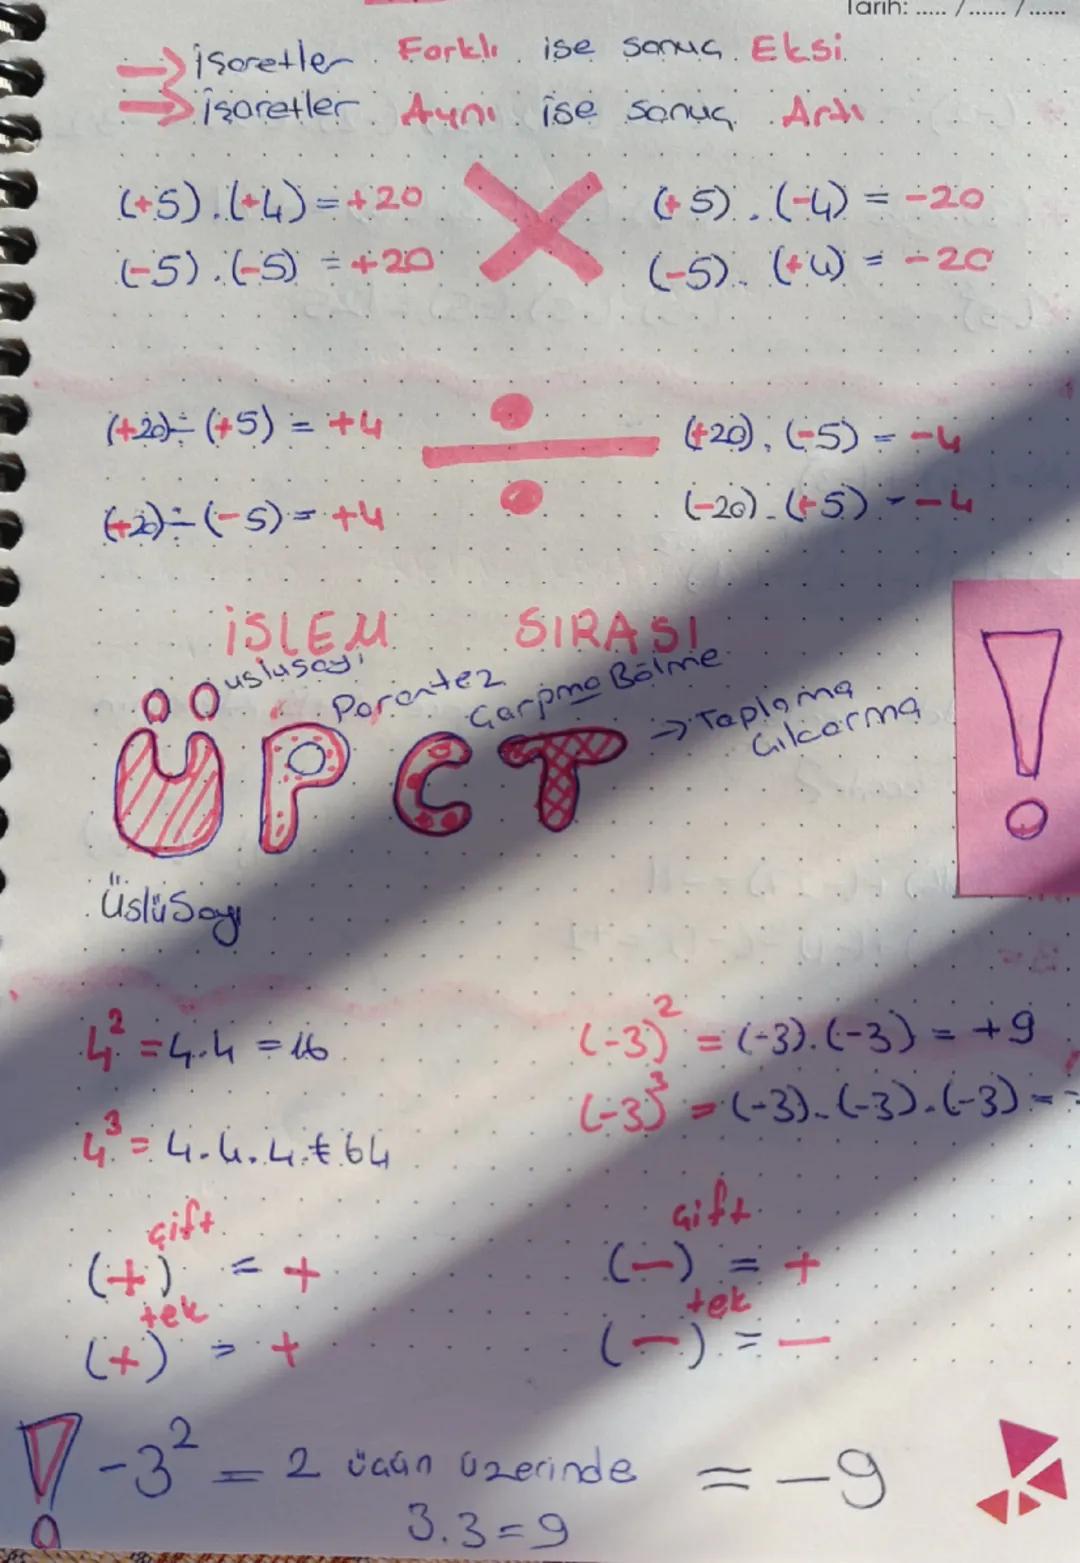 Tarih: ..... /...... /......
işaretler Farklı ise sonuç Eksi
işaretler Aynı ise sonuç Artı
(+5).(+4)=+20 × (+5).(-4) = -20
(-5).(-5) = +20 (-5).(+4) = -20
(+20)÷(+5) = +4 ÷ (+20).(-5) = -4
(+20)÷(-5) = +4 (-20).(+5) = -4
İSLEM SIRASI
üslüsayı Parantez Çarpma Bölme
ÜPÇT → Toplama
Çıkarma
!
ÜslüSayı
4² = 4.4 = 16 (-3)² = (-3).(-3) = +9
4³ = 4.4.4 = 64 (-3)³ = (-3).(-3).(-3) = -
çift çift
(+) = + (-) = +
tek tek
(+) = + (-) = -
! -3² = 2 üçün üzerinde = -9
3.3=9